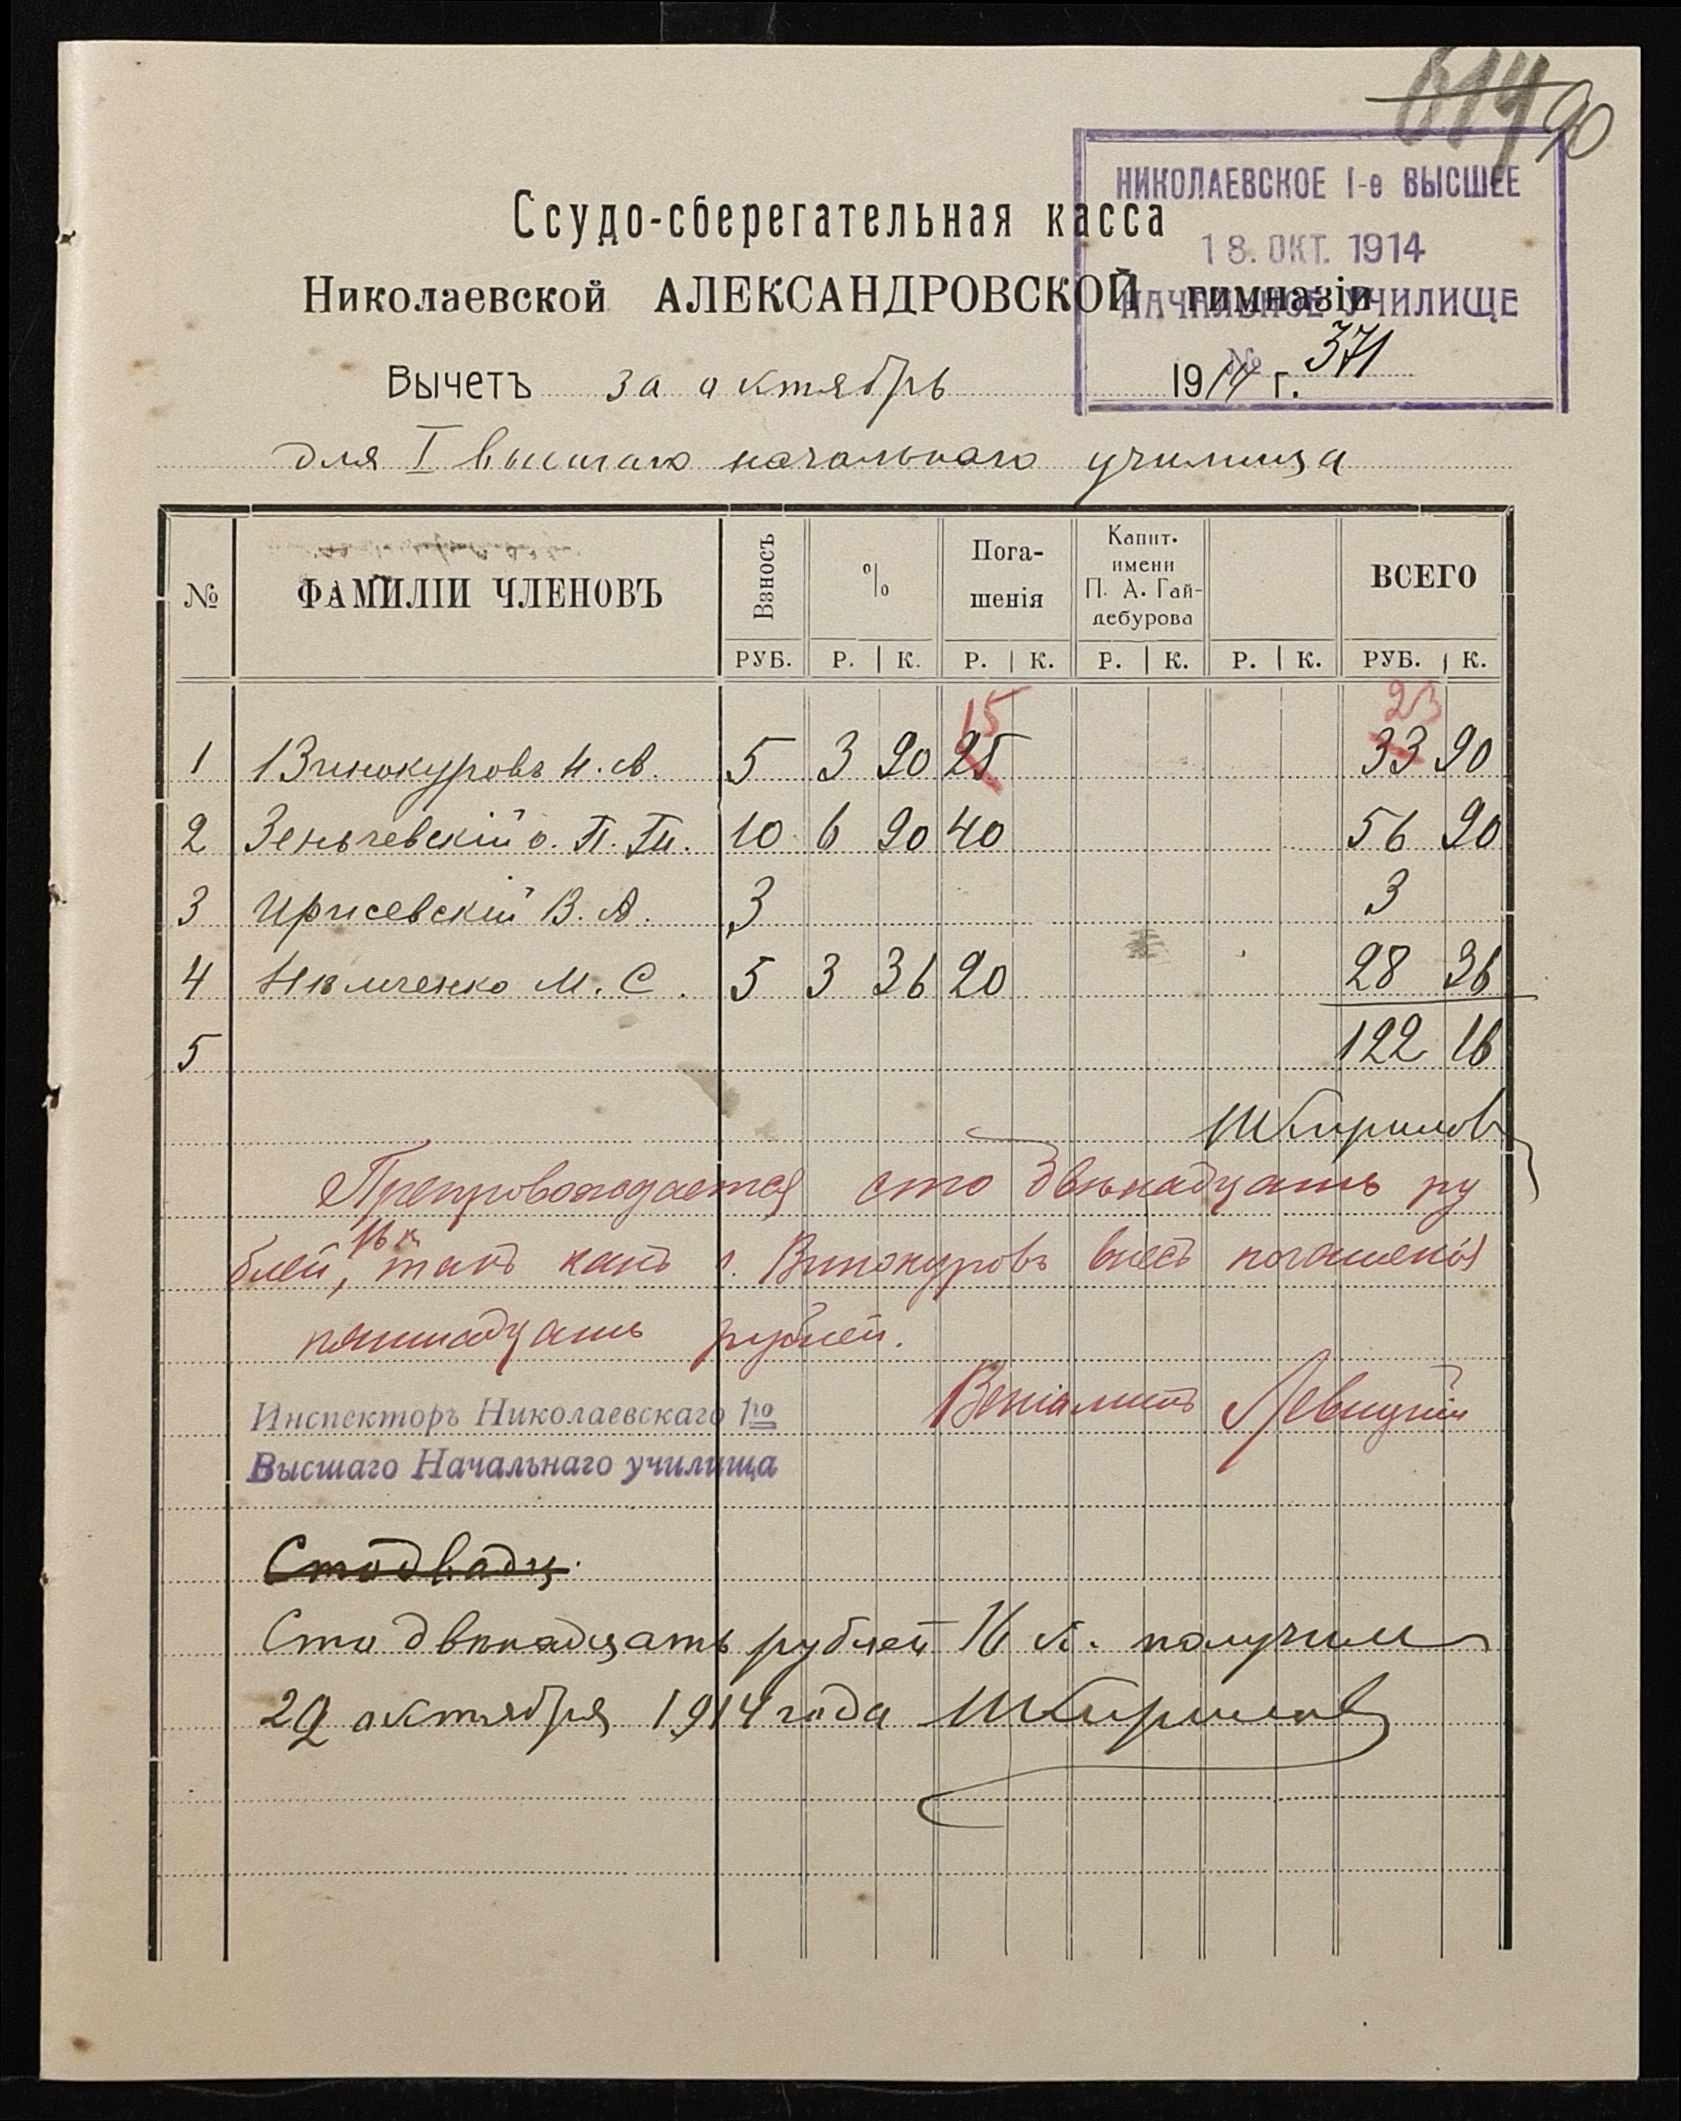 614 90
НИКОЛАЕВСКОЕ I-е ВЫСШЕЕ
18. ОКТ. 1914
НАЧАЛЬНОЕ УЧИЛИЩЕ
№ 371
Ссудо-сберегательная касса
Николаевской АЛЕКСАНДРОВСКОЙ гимназіи
Вычетъ за октябрь 1914 г.
для I высшаго начальнаго училища
№ ФАМИЛІИ ЧЛЕНОВЪ Взносъ % Пога-шенія Капит. имени П. А. Гай-дебурова ВСЕГО
РУБ. Р. К. Р. К. Р. К. Р. К. РУБ. К.
15 23
1 Винокуровъ Н. 5 3 90 25 33 90
2 Зеньчевскій о. П. 10 6 90 40 56 90
3 В. А. 3 3
4 Нѣмченко М. С. 5 3 36 20 28 36
5 122 16
Препровождается сто двѣнадцать ру
блей, 16 к. такъ какъ г. Винокуровъ внесъ погашенія
пятнадцать рублей.
Веніаминъ Левицкій
Инспекторъ Николаевскаго 1го
Высшаго Начальнаго училища
Сто двадц.
Сто двѣнадцать рублей 16 к. получил
29 октября 1914 года